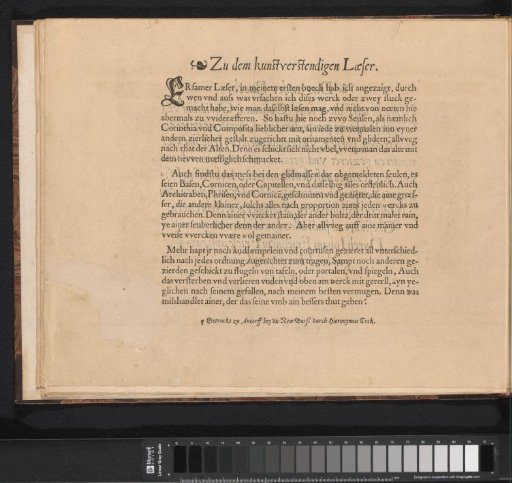 Zu dem kunstverstendigen Læser.
ERsamer Læser, in meinem ersten buech hab ich angezaigt, durch
wen vnd auss was vrsachen ich dises werck oder zwey stuck ge-
macht habe, wie man daselbst læsen mag, vnd nicht von nœten hie
abermals zu vvideræfferen. So hastu hie noch zvvo Seulen, als næmlich
Corinthia vnd Composita lieblicher art, ain iede zu vermalen inn eyner
andern zierlicher gestalt zugericht mit ornamenten vnd glidern, allvveg
nach der Alten. Denn es schickt sich nicht vbel, vvenn man das alte mit
dem nevven mæssiglich schmucket.
Auch findstu das mess bei den glidmassen der obgemeldeten seulen, es
seien Basen, Cornicen, oder Capitellen, vnd dasselbig alles ordenlich. Auch
Architraben, Phrisen, vnd Cornice, geschnitten vnd gezieret, die aine grœs-
ser, die andere klainer, solchs alles nach proportion aines ieden vvercks zu
gebrauchen. Denn aines vvircket stain, der ander holtz, der dritt malet rain,
ye ainer seuberlicher denn der ander. Aber allvveg auff aine manier vnd
vveise vvercken vvære vvol gemainer.
Mehr hapt jr noch
gezieret all vnterschied-
lich nach jedes ordnung zugerichtet zum tragen, Sampt noch anderen ge-
zierden geschickt zu flugeln von tafeln, oder portalen, vnd spiegeln, Auch
das versterben vnd verlieren vnden vnd oben am werck mit gercell, ayn ye-
glichen nach seinem gefallen, nach meinem besten vermugen. Denn was
misshandlet ainer, der das seine vmb ain bessers thut geben?
Getruckt zu Antorff bey die New Bors durch Hieronymus Cock.